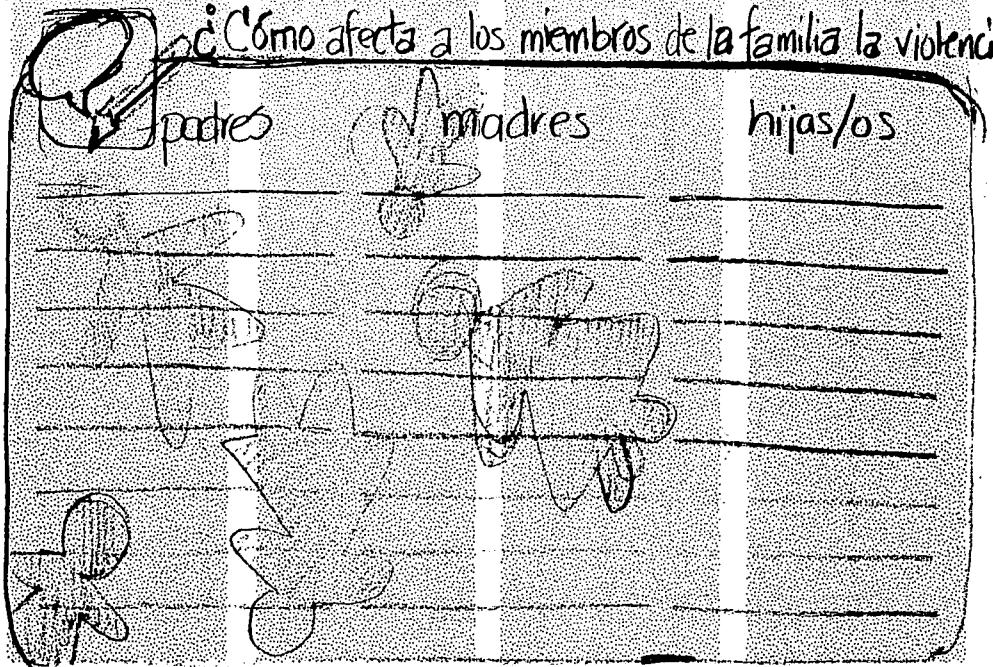 ¿Cómo afecta a los miembros de la familia la violenci
padres madres hijas/os